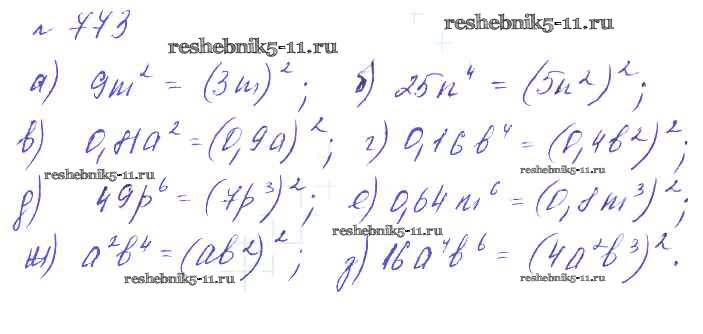 № 773
reshebnik5-11.ru
reshebnik5-11.ru
а) 9m² = (3m)²; б) 25n⁴ = (5n²)²;
в) 0,81a² = (0,9a)²; г) 0,16b⁴ = (0,4b²)²;
reshebnik5-11.ru
reshebnik5-11.ru
д) 49p⁶ = (7p³)²; е) 0,64m⁶ = (0,8m³)²;
reshebnik5-11.ru
ж) a²b⁴ = (ab²)²; з) 16a⁴b⁶ = (4a²b³)².
reshebnik5-11.ru
reshebnik5-11.ru